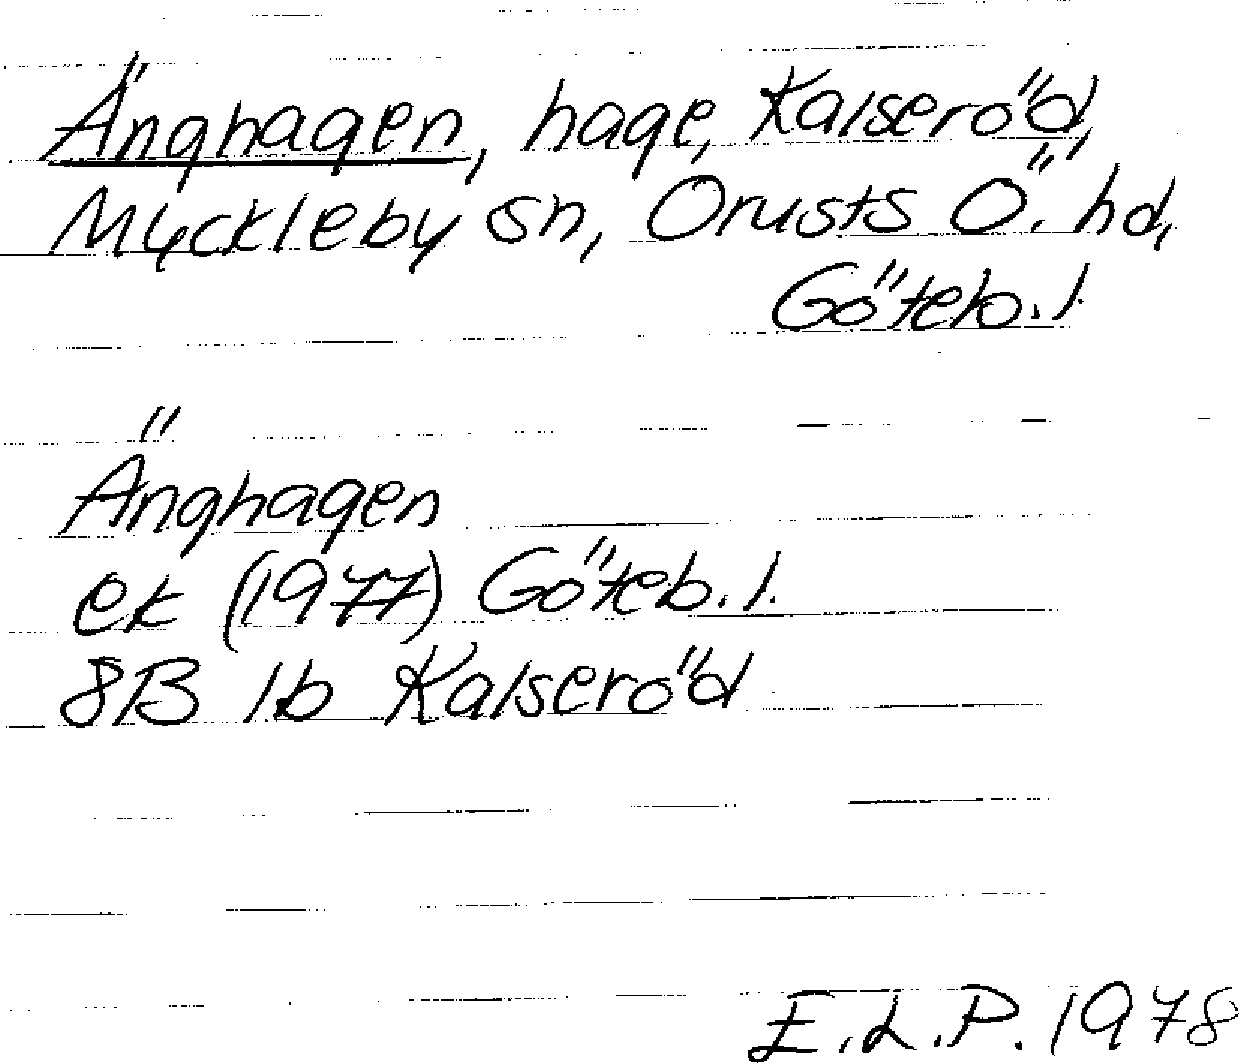 Änghagen, hage, Kalseröd,
Myckleby sn, Orusts Ö. hd,
Göteb. l.
Änghagen
ek (1977) Göteb. l.
8B 1b Kalseröd
E.L.P. 1978